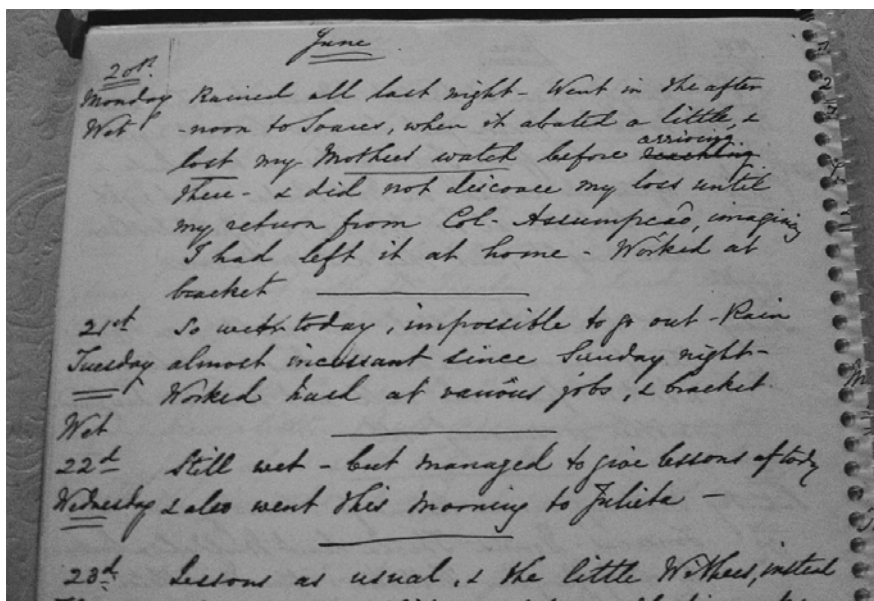 June
20th.
Monday Rained all last night - Went in the after
Wet -noon to Soares, when it abated a little, &
lost my Mother's watch before arriving
there - & did not discover my loss until
my return from Col - Assumpcaõ, imagining
I had left it at home - Worked at
bracket
21st So wet today, impossible to go out - Rain
Tuesday almost incessant since Sunday night -
Worked hard at various jobs, & bracket
Wet
22d Still wet - but managed to give lessons of today
Wednesday & also went this morning to Julieta -
23d Lessons as usual, & the little Withers, instead